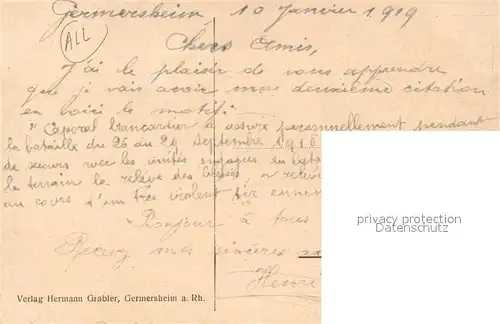 Germersheim 10 Janvier 1919
ALL
Chers Amis,
J'ai le plaisir de vous apprendre
que je vais avoir ma deuxième citation
en voici le motif: —
"Caporal brancardier à assuré personnellement pendant
la bataille du 26 au 29 Septembre 1918
de secours avec les unités engagées du
le terrain la relève des blessés
au cours d'un très violent tir ennem
Bonjour à tous
Recevez mes sincères
Henri
Verlag Hermann Grabler, Germersheim a. Rh.
privacy protection
AnsichtskartenVersand.com